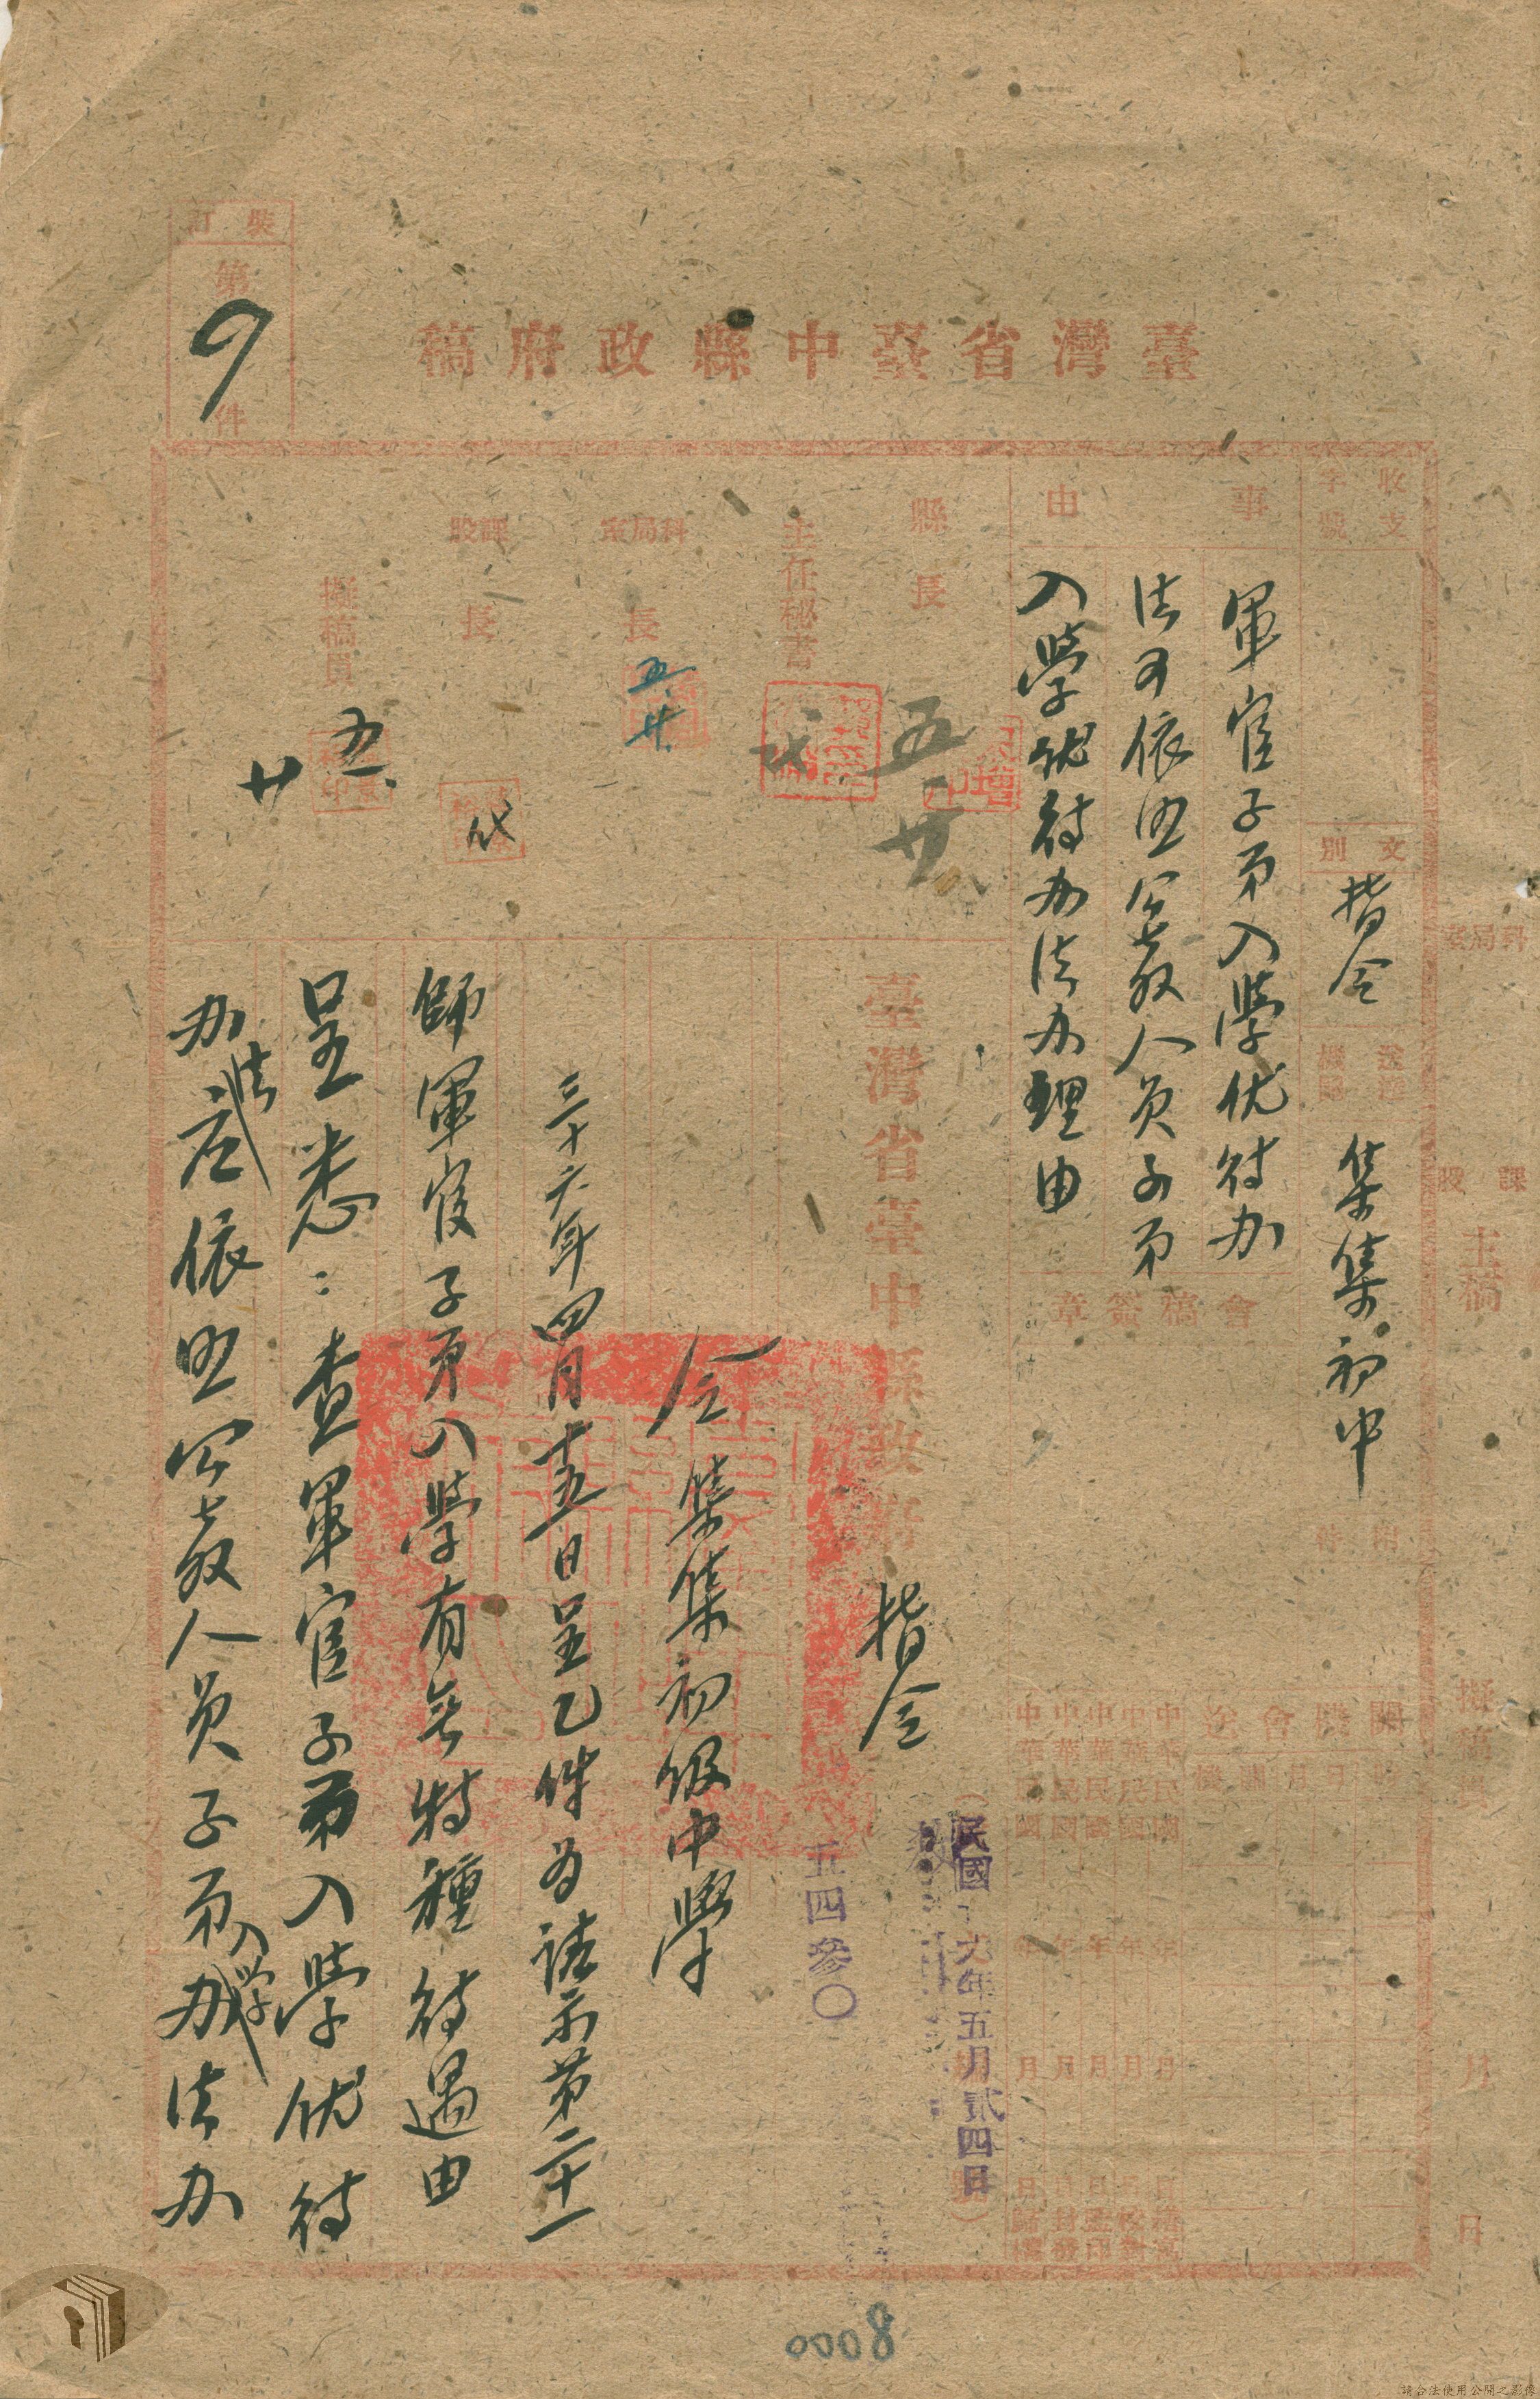 裝訂
第
9
件
臺灣省臺中縣政府稿
收文
字號
文別
指令
送達機關
集集初中
事由
軍官子弟入學优待办
法可依照公教人員子弟
入學优待办法办理由
會稿簽章
縣長
五
廿
主任秘書
代
科局室
長
五.廿.
課股
長
代
擬稿員
五.
廿
科局室
課股
主稿
擬稿員
月
日
臺灣省臺中縣政府
指令
民國
九年五月貳四日
五四參〇
令集集初級中學
三十六年四月十五日呈乙件為請示第二十一
師軍官子弟入學有無特種待遇由
呈悉：查軍官子弟入學优待
办法
依照公教人員子弟入學
办法办
0008
請合法使用公開之影像